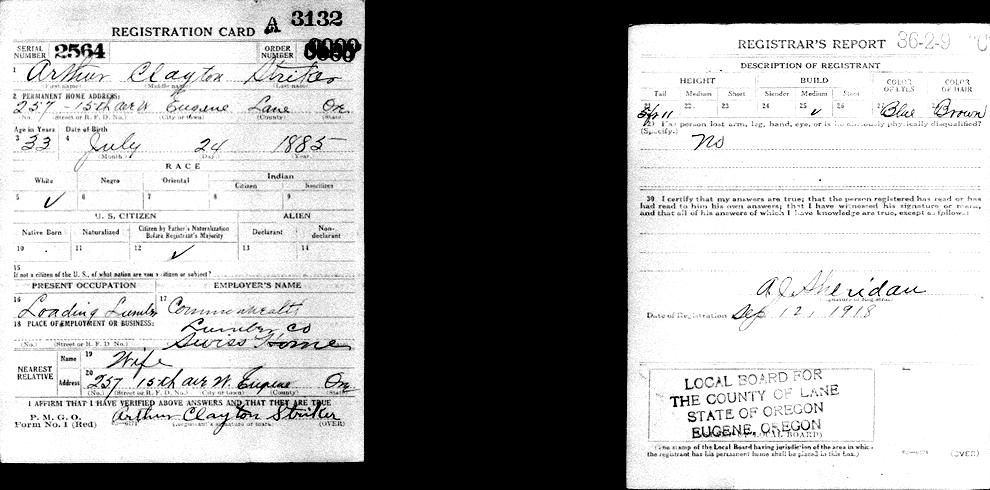 A 3132
REGISTRATION CARD
SERIAL NUMBER 2564 ORDER NUMBER
1 Arthur Clayton Striker
(First name) (Middle name) (Last name)
2 PERMANENT HOME ADDRESS:
257 - 15th ave W Eugene Lane Ore
(No.) (Street or R. F. D. No.) (City or town) (County) (State)
Age in Years Date of Birth
3 33 4 July 24 1885
(Month) (Day) Year
RACE
White Negro Oriental Indian
Citizen Noncitizen
5 ✓ 6 7 8 9
U. S. CITIZEN ALIEN
Native Born Naturalized Citizen by Father's Naturalization Before Registrant's Majority Declarant Non-declarant
10 11 12 ✓ 13 14
15
If not a citizen of the U. S., of what nation are you a citizen or subject?
PRESENT OCCUPATION EMPLOYER'S NAME
16 Loading Lumber 17 Commonwealth
18 PLACE OF EMPLOYMENT OR BUSINESS: Lumber Co
Swiss Home
(No.) (Street or R. F. D. No.)
NEAREST RELATIVE
Name 19 Wife
Address 20 257 15th ave W. Eugene Ore
(No.) (Street or R. F. D. No.) (City or town) (County) (State)
I AFFIRM THAT I HAVE VERIFIED ABOVE ANSWERS AND THAT THEY ARE TRUE
P. M. G. O. Arthur Clayton Striker
Form No. 1 (Red) (Registrant's signature or mark) (OVER)
REGISTRAR'S REPORT 36-2-9 "C"
DESCRIPTION OF REGISTRANT
HEIGHT BUILD COLOR OF EYES COLOR OF HAIR
Tall Medium Short Slender Medium Stout
21 5ft 11 22 23 24 25 ✓ 26 27 Blue Brown
29 Has person lost arm, leg, hand, eye, or is he obviously physically disqualified?
(Specify.) No
30. I certify that my answers are true; that the person registered has read or has
had read to him his own answers; that I have witnessed his signature or mark,
and that all of his answers of which I have knowledge are true, except as follows:
A J Sheridan
(Signature of Registrar)
Date of Registration Sep 12, 1918
LOCAL BOARD FOR
THE COUNTY OF LANE
STATE OF OREGON
EUGENE, OREGON
(STAMP OF LOCAL BOARD)
(The stamp of the Local Board having jurisdiction of the area in which
the registrant has his permanent home shall be placed in this box.)
(OVER)